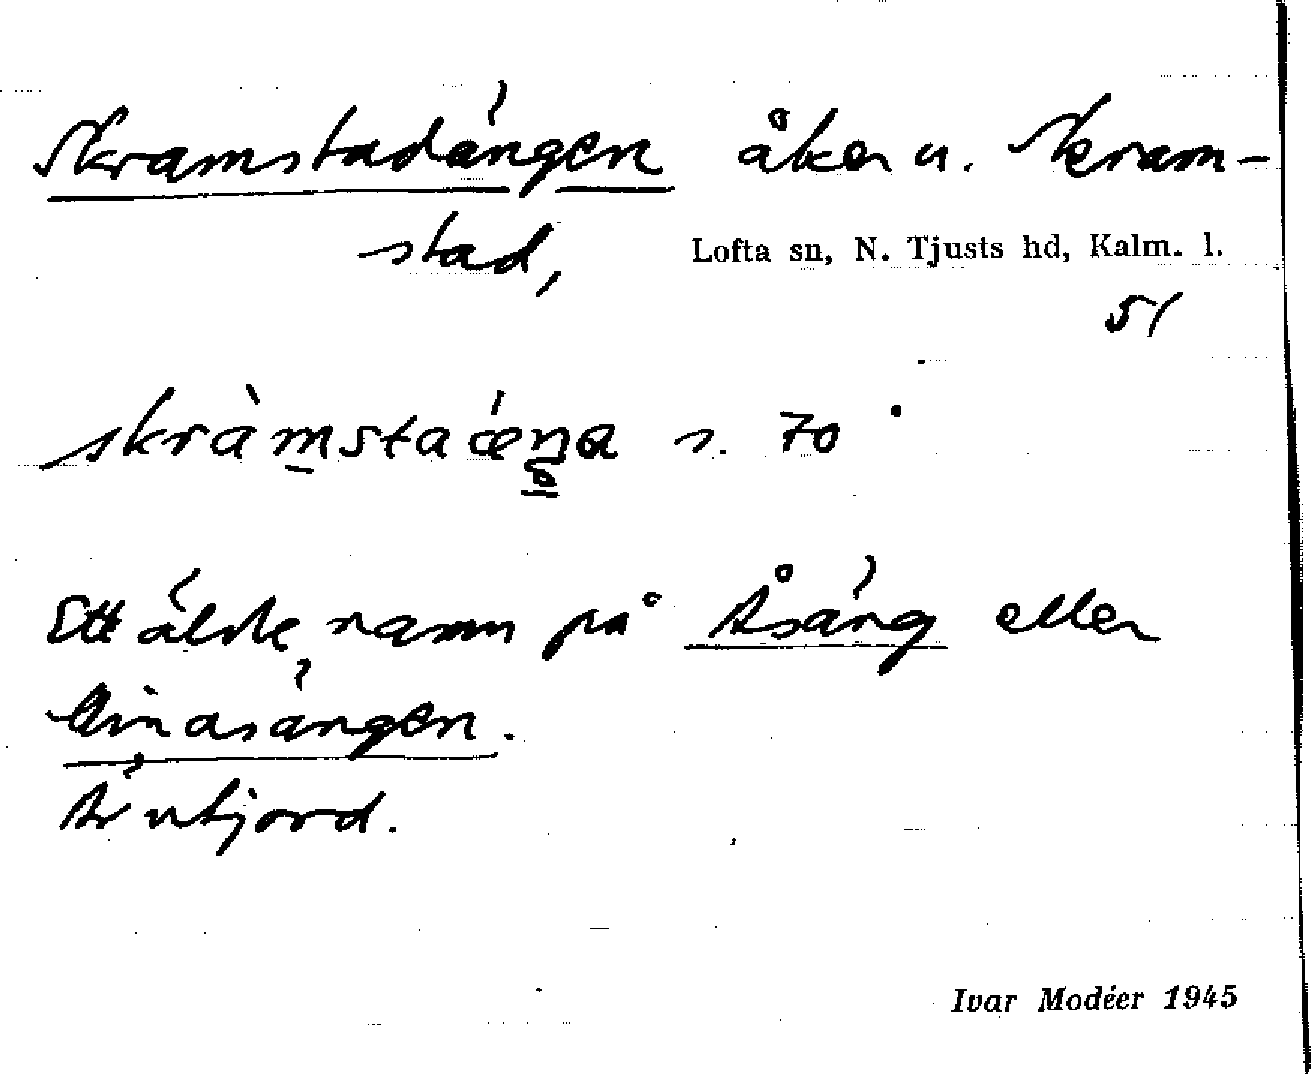 Skramstadängen åker u. Skram-
stad,
Lofta sn, N. Tjusts hd, Kalm. l.
51
skràmstaǽŋa s. 70
Ett äldre namn på Åsäng eller
Linasängen.
Är utjord.
Ivar Modéer 1945